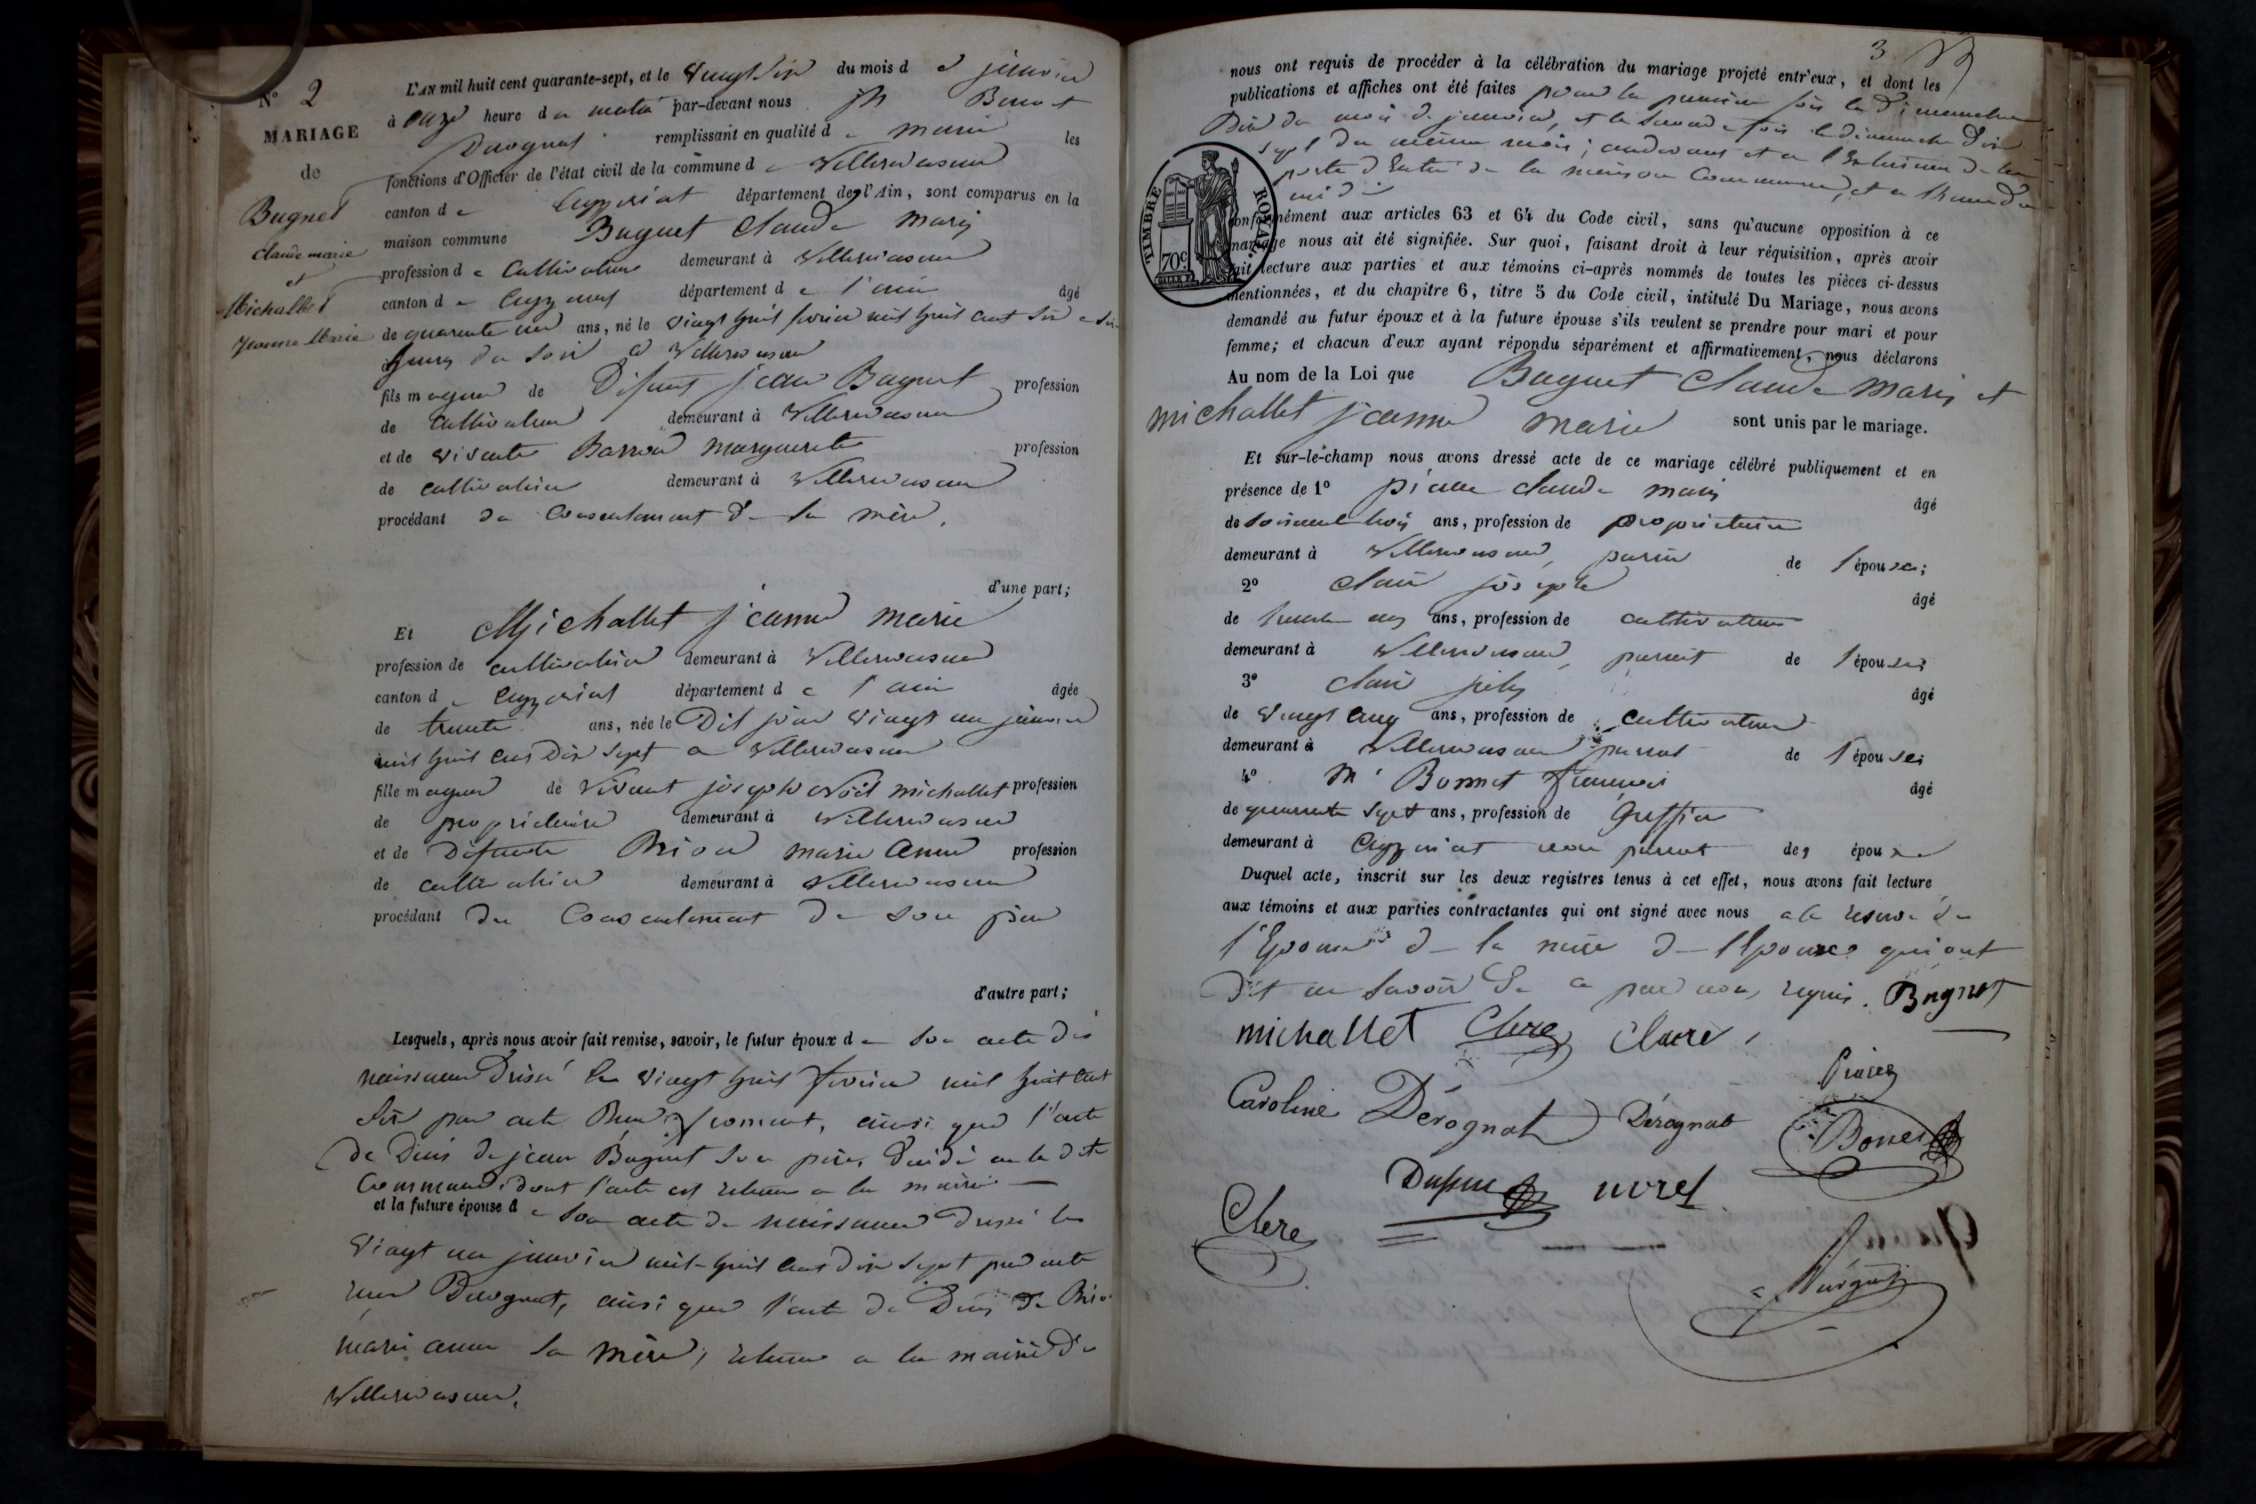 N° 2
MARIAGE
de
Bugnet
Claude marie
et
Michallet
Jeanne Marie
L'AN mil huit cent quarante-sept, et le vingt six du mois d e janvier
à onze heure d u matin par-devant nous Jh Benoit
Derognat remplissant en qualité d e maire les
fonctions d'Officier de l'état civil de la commune d e Villereversure
canton d e Ceyzeriat département de l'Ain, sont comparus en la
maison commune Buguet Claude Marie
profession d e Cultivateur demeurant à Villereversure
canton d e Ceyzeriat département d e l'ain âgé
de quarante un ans, né le vingt huit février mil huit cent six a six
heures du soir a Villereversure
fils majeur de Défunt jean Buguet profession
de cultivateur demeurant à Villereversure
et de vivante Marguerite profession
de cultivatrice demeurant à Villereversure
procédant du Consentement de sa mère.
d'une part;
Et Michallet jeanne marie
profession de cultivatrice demeurant à Villereversure
canton d e Ceyzeriat département d e l'ain âgée
de trente ans, née le Dit jour vingt un janvier
mil huit cent dix sept a Villereversure
fille majeure de vivant joseph Noël michallet profession
de propriétaire demeurant à Villereversure
et de Défunte Brion marie anne profession
de cultivatrice demeurant à Villereversure
procédant du Consentement de son père
d'autre part;
Lesquels, après nous avoir fait remise, savoir, le futur époux d e son acte de
naissance Dressé le vingt huit février mil huit cent
six par acte froment, ainsi que l'acte
de Décès de jean Buguet son père, Décédé en la dite
Commune, dont l'acte est retenu a la mairie
et la future épouse d e son acte de naissance dressé le
vingt un janvier mil huit cent dix sept par acte
reçu Derognat, ainsi que l'acte de Décès de Brion
marie anne sa mère, retenu a la mairie de
Villereversure.
3
nous ont requis de procéder à la célébration du mariage projeté entr'eux, et dont les
publications et affiches ont été faites pour la première fois le dimanche
Dix du mois de janvier, et la seconde fois le dimanche Dix
sept du même mois; audevant et a l'Extérieur de la
porte d'Entrée de la maison Commune, et a l'heure de
midi
TIMBRE ROYAL
70c
conformément aux articles 63 et 64 du Code civil, sans qu'aucune opposition à ce
mariage nous ait été signifiée. Sur quoi, faisant droit à leur réquisition, après avoir
fait lecture aux parties et aux témoins ci-après nommés de toutes les pièces ci-dessus
mentionnées, et du chapitre 6, titre 5 du Code civil, intitulé Du Mariage, nous avons
demandé au futur époux et à la future épouse s'ils veulent se prendre pour mari et pour
femme; et chacun d'eux ayant répondu séparément et affirmativement, nous déclarons
Au nom de la Loi que Buguet Claude Marie et
michallet jeanne marie sont unis par le mariage.
Et sur-le-champ nous avons dressé acte de ce mariage célébré publiquement et en
présence de 1° claude marie âgé
de soixante trois ans, profession de propriétaire
demeurant à Villereversure, parrin de l'épouse;
2° Clair joseph âgé
de ans, profession de cultivateur
demeurant à Villereversure, parent de l'épouse;
3° Clair âgé
de vingt cinq ans, profession de cultivateur
demeurant à Villereversure parent de l'épouse;
4° Mr Bonnet françois âgé
de quarante sept ans, profession de Greffier
demeurant à Ceyzeriat non parent des époux
Duquel acte, inscrit sur les deux registres tenus à cet effet, nous avons fait lecture
aux témoins et aux parties contractantes qui ont signé avec nous a la réserve de
l'Epouse de la mère de l'Epoux qui ont
Dit ne savoir de ce par nous requis. Bugnet
michallet Clere Claire
Caroline Dérognat Dérognat
Bonnet
Clere